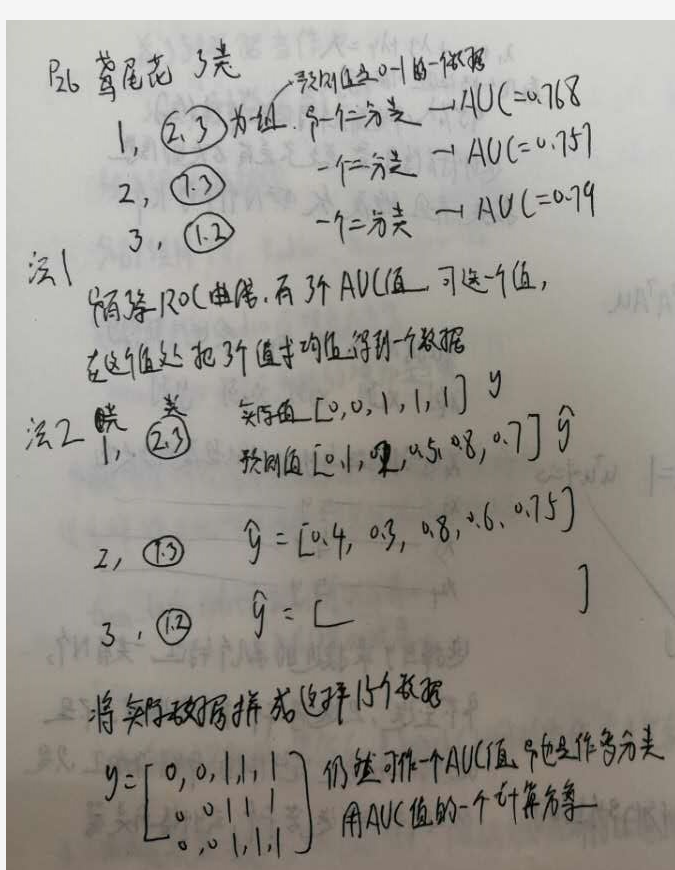 P26 鸢尾花 3类
预测值是0-1的一个数据
1, (2.3) 为一组. 一个二分类 → AUC=0.768
2, (1.3) 一个二分类 → AUC=0.757
3, (1.2) 一个二分类 → AUC=0.79
法1
ROC曲线.有3个AUC值 可选一个值,
在这个值处 把3个值求均值.得到一个数据
法2 类 实际值 [0,0,1,1,1] y
1, (2.3) 预测值 [0.1, 0.5, 0.8, 0.7] ŷ
2, (1.3) ŷ = [0.4, 0.3, 0.8, 0.6, 0.75]
3, (1.2) ŷ = [ ]
将实际数据拼成这样15个数据
y=[0,0,1,1,1
0 0 1 1 1
0,0 1,1,1] 仍然可作一个AUC值, 也是作多分类
用AUC值的一个计算方案